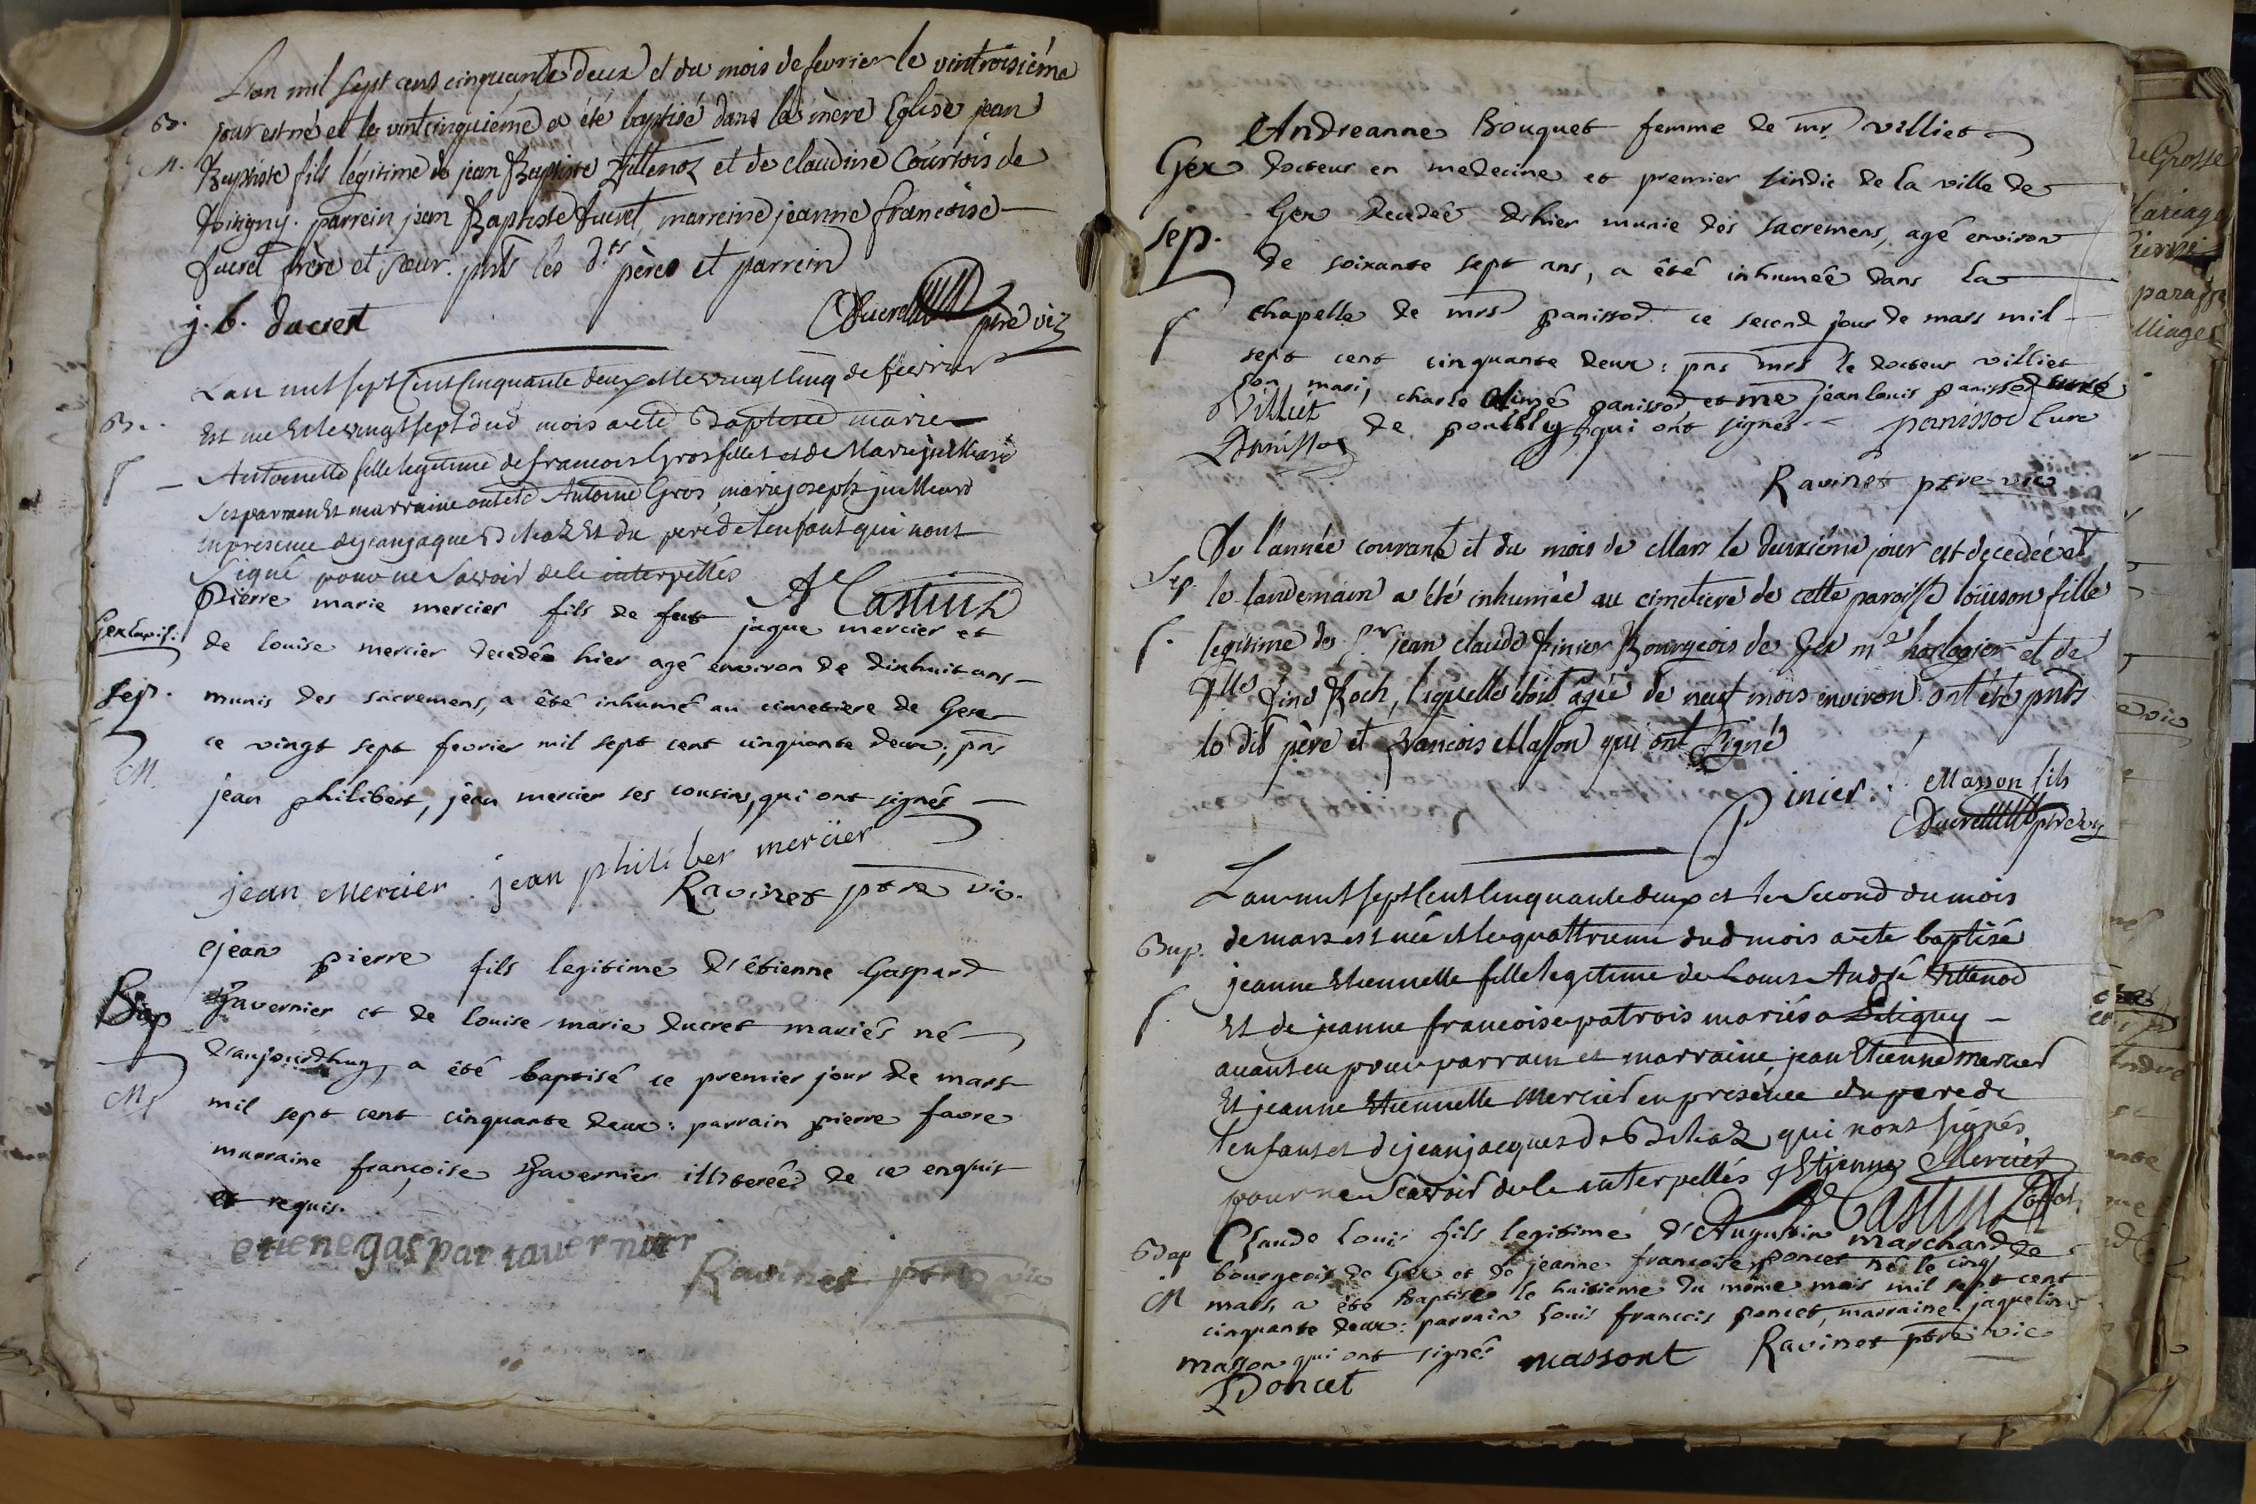 L'an mil sept cens cinquante deux et du mois de fevrier le vintroisiéme
B. jour est né et le vintcinquiéme a été baptisé dans la mère Eglise jean
M. Baptiste fils légitime de jean Baptiste Villenoz et de claudine Courtois de
parrein jean Baptiste Ducret, marreine jeanne françoise
Ducret frère et sœur. pnts les d.ts pères et parrein
j. b. ducrest Ducret ptre vic
Lan mil sept Cent Cinquante deux et le vingt Cinq de fevrier
B. Est née Et le vingt sept dud mois a eté Baptisée marie
f Antoinette fille legitime de francois Grosfillet et de Marie juilliard
Ses parrain Et marraine ont eté Antoine Gros, marie joseph juilliard
en presence de jean jaque Et du pere de lenfant qui nont
Signé pour ne Savoir de le interpellés
A Castin
Pierre marie mercier fils de feu jaque mercier et
de louise mercier decedé hier agé environ de dixhuit ans
Sep. munis des sacremens, a êté inhumé au cimetiere de Gex
ce vingt sept fevrier mil sept cent cinquante deux; pns
M. jean philibert, jean mercier ses cousins, qui ont signés
jean Mercier jean philiber merciier
Ravinet ptre vic.
jean pierre fils legitime d'êtienne Gaspard
Bap Tavernier et de louise marie Ducret mariés né
d'aujourdhuy, a êté baptisé ce premier jour de mars
M. mil sept cent cinquante deux: parrain pierre favre
marraine françoise Tavernier illiterée de ce enquis
et requis.
etiene gaspar tavernier
Ravinet ptre vic
Andreanne Bouquet femme de mr. villiet
Gex docteur en medecine et premier sindic de la ville de
Gex decedée d'hier munie des sacremens, agé environ
Sep. de soixante sept ans, a êté inhumée dans la
f chapelle de mrs panissod ce second jour de mars mil
sept cent cinquante deux: pns mrs le docteur villiet
son mari, charle aimé panissod et me jean louis panissod curé
de pouilly, qui ont signés
Villiet panissod Curé
Panissod
Ravinet ptre vic
De l'année courante et du mois de Mars le deuxiéme jour est decedée et
Sep. le landemain a été inhumée au cimetiere de cette paroisse loüison fille
f. legitime de Sr jean claude Pinier Bourgeois de Gex me horloger et de
Roch, laquelle étoit agée de neuf mois environ. ont été pnts
le dit père et François Masson qui ont signé
Pinier. Masson fils
Ducret ptre vic
Lan mil sept Cent Cinquante deux et le Second du mois
Bap. de mars est née et le quattrieme dud mois a eté baptisé
jeanne Etiennette fille legitime de Louis André Villenod
f. Et de jeanne francoise patrois mariés a
aiant eu pour parrain et marraine, jean Etienne Mercier
Et jeanne Etiennette Mercier en presence du pere de
lenfant et de jean jacques qui nont signés
pour ne Scavoir de le interpellés Etienne Mercier
A Castin
Bap Claude Louis fils legitime d'Augustin marchand
bourgeois de Gex et de jeanne françoise poncet né le cinq de
M mars, a êté Baptisé le huitieme du même mois mil sept cent
cinquante deux: parrain Louis françois poncet, marraine jaqueline
masson qui ont signés massont Ravinet ptre vic
Poncet